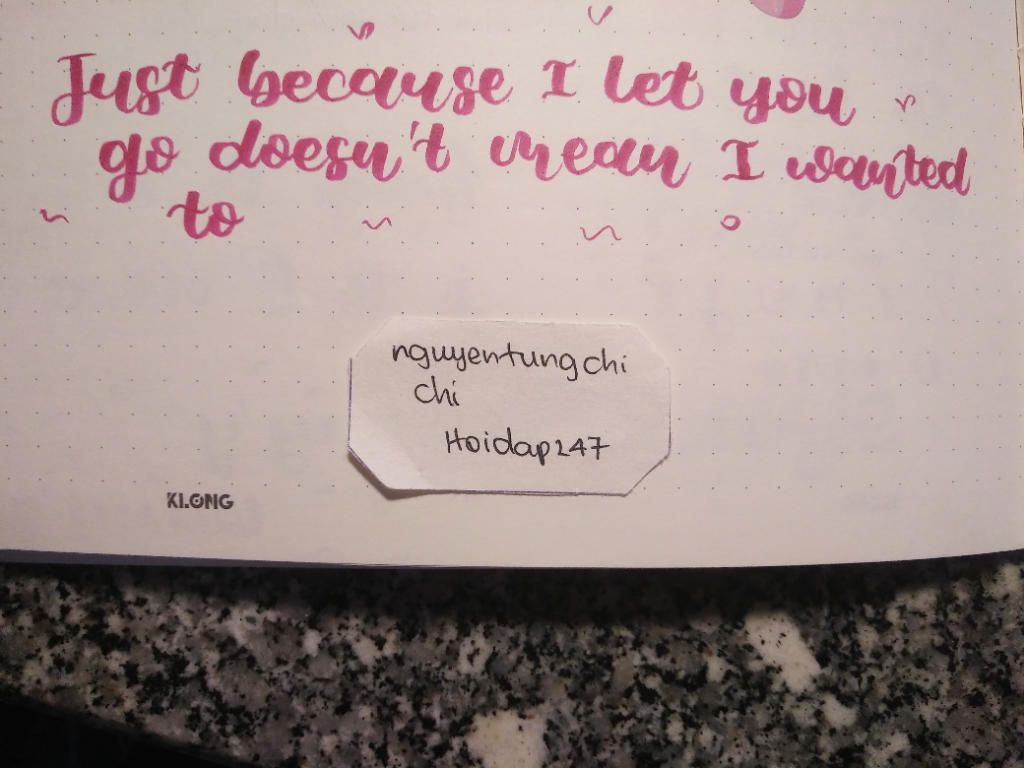 Just because I let you
go doesn't mean I wanted
to
nguyentungchi
chi
Hoidap247
KLONG